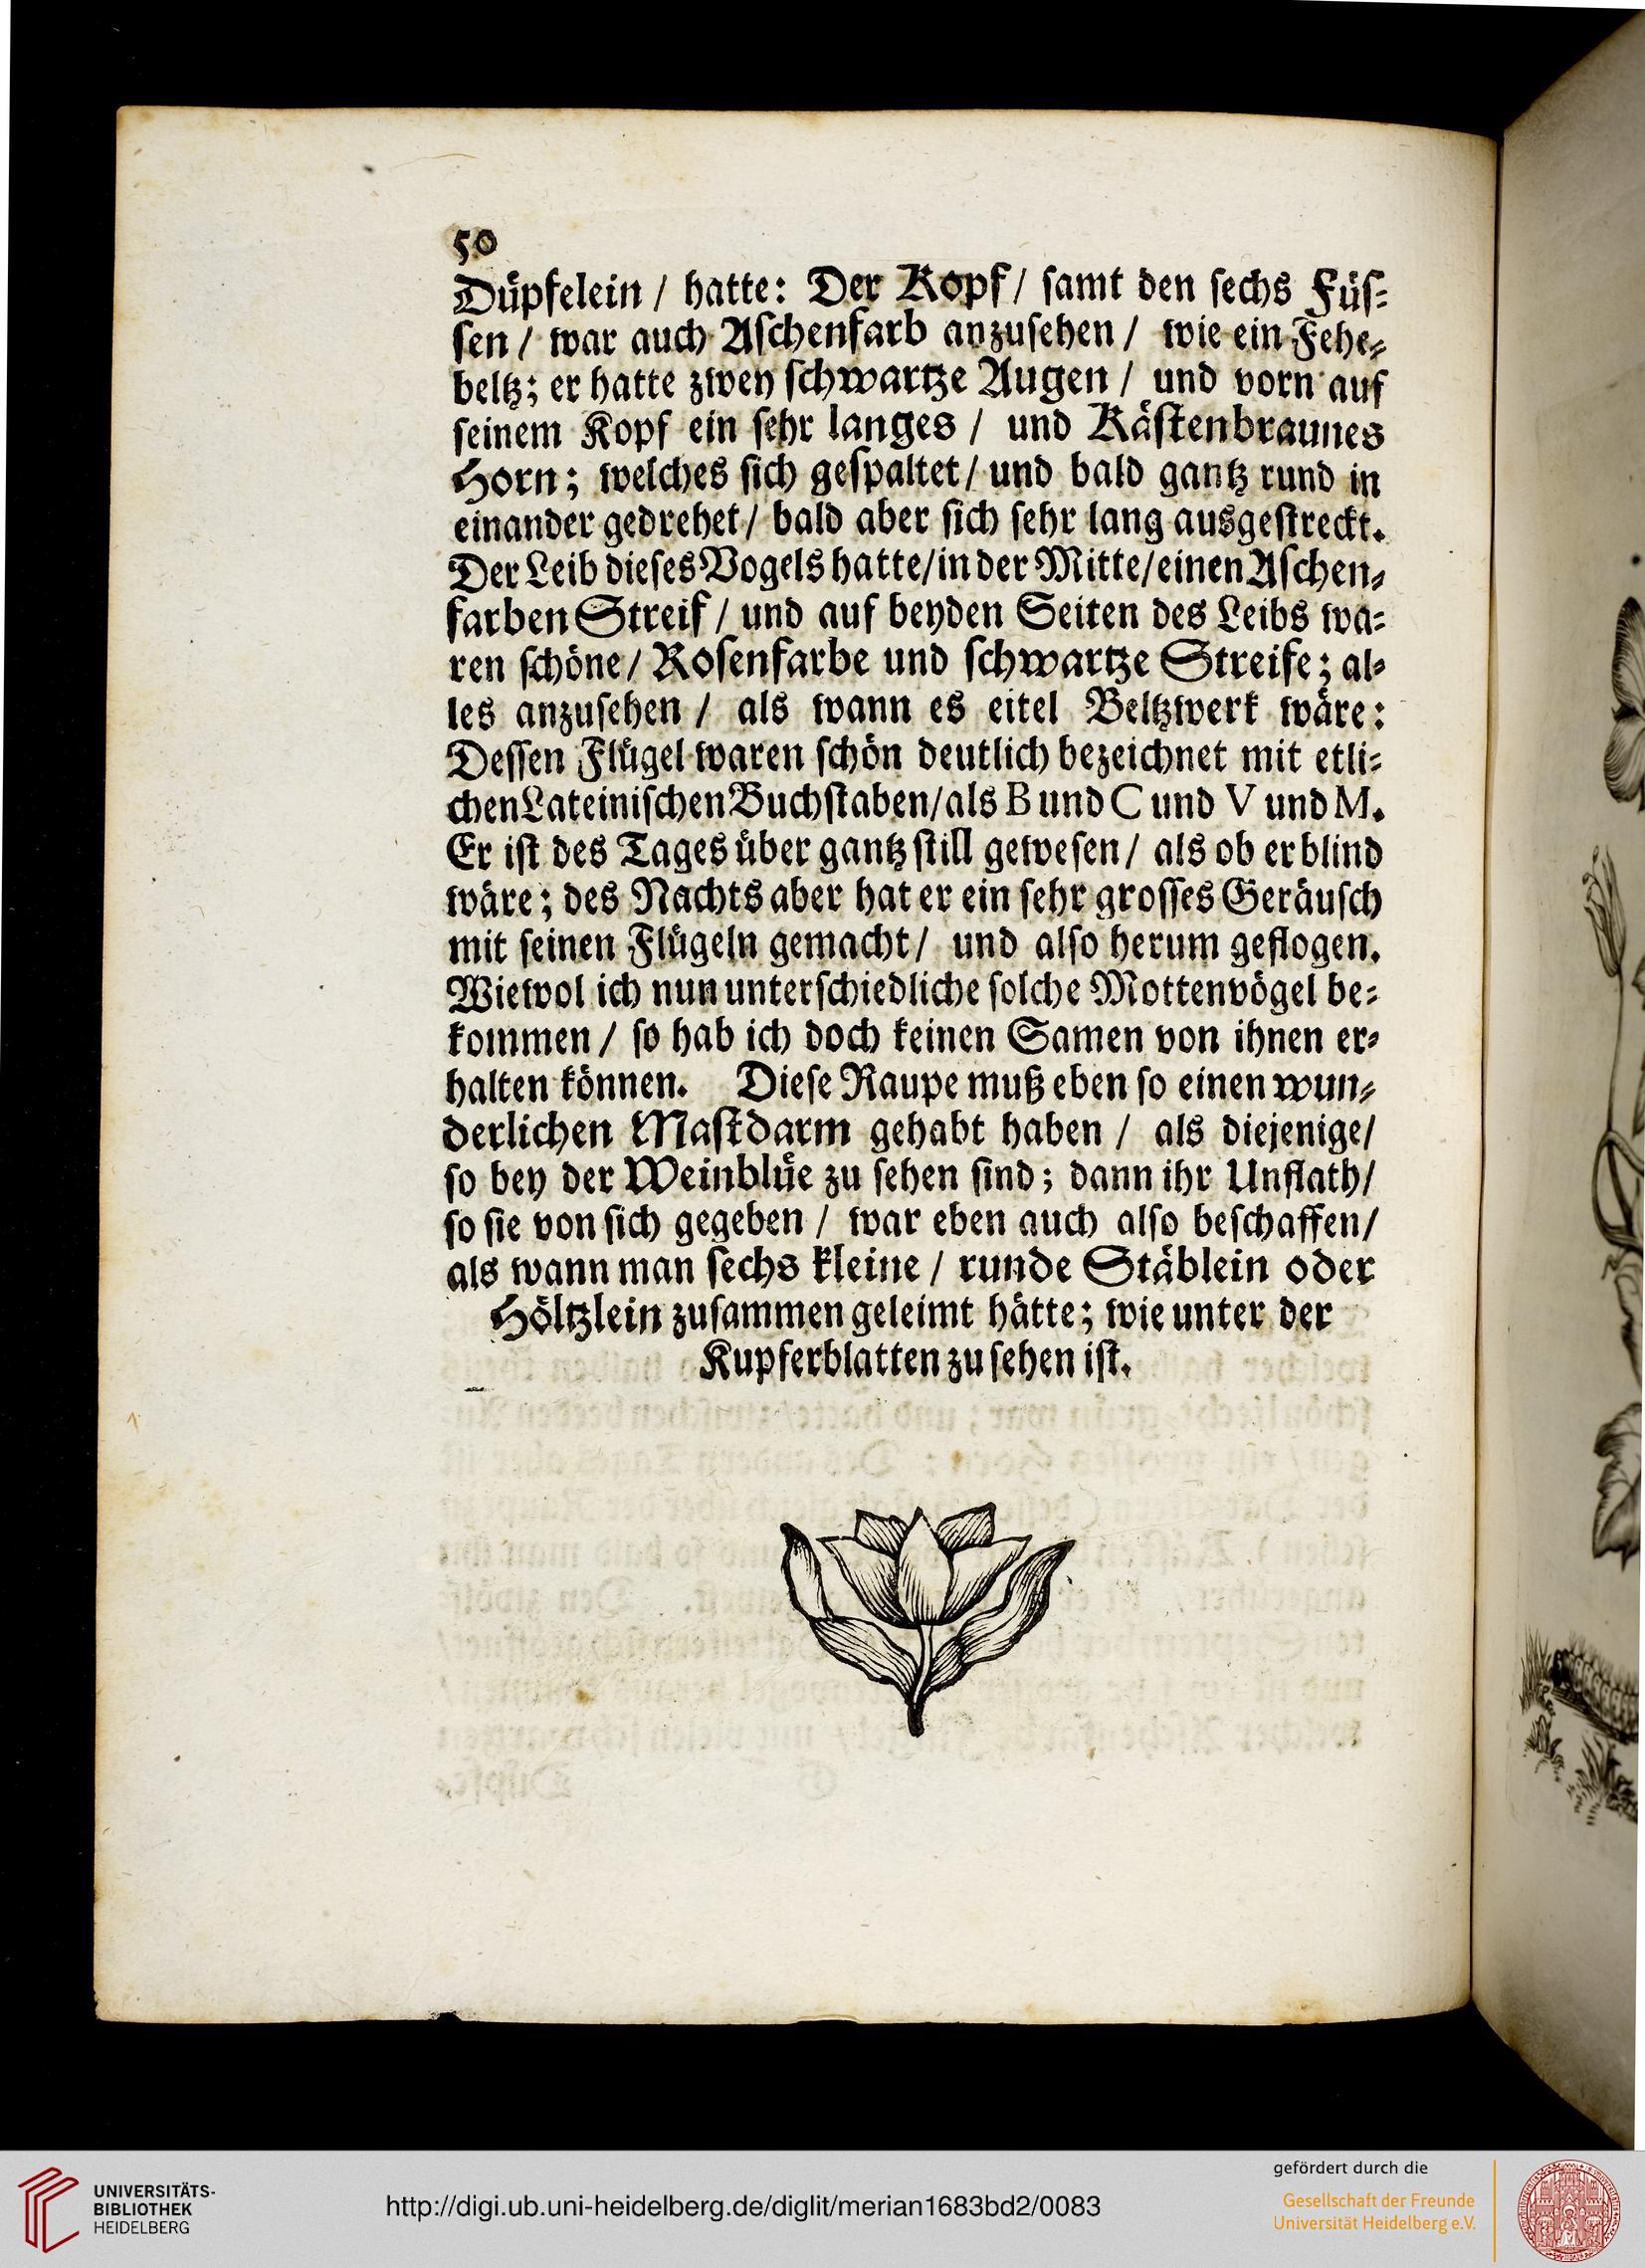 50
Düpfelein / hatte: Der Kopf / ſamt den ſechs Füſ-
ſen / war auch Aſchenfarb anzuſehen / wie ein Fehe-
beltz; er hatte zwey ſchwartze Augen / und vorn auf
ſeinem Kopf ein ſehr langes / und Käſtenbraunes
Horn; welches ſich geſpaltet / und bald gantz rund in
einander gedrehet / bald aber ſich ſehr lang ausgeſtreckt.
Der Leib dieſes Vogels hatte / in der Mitte / einen Aſchen-
farben Streif / und auf beyden Seiten des Leibs wa-
ren ſchöne / Roſenfarbe und ſchwartze Streife; al-
les anzuſehen / als wann es eitel Beltzwerk wäre:
Deſſen Flügel waren ſchön deutlich bezeichnet mit etli-
chen Lateiniſchen Buchſtaben / als B und C und V und M.
Er iſt des Tages über gantz ſtill geweſen / als ob er blind
wäre; des Nachts aber hat er ein ſehr groſſes Geräuſch
mit ſeinen Flügeln gemacht / und alſo herum geflogen.
Wiewol ich nun unterſchiedliche ſolche Mottenvögel be-
kommen / ſo hab ich doch keinen Samen von ihnen er-
halten können. Dieſe Raupe muß eben ſo einen wun-
derlichen Maſtdarm gehabt haben / als diejenige /
ſo bey der Weinblüe zu ſehen ſind; dann ihr Unflath /
ſo ſie von ſich gegeben / war eben auch alſo beſchaffen /
als wann man ſechs kleine / runde Stäblein oder
Höltzlein zuſammen geleimt hätte; wie unter der
Kupferblatten zu ſehen iſt.
UNIVERSITÄTS-
BIBLIOTHEK
HEIDELBERG
http://digi.ub.uni-heidelberg.de/diglit/merian1683bd2/0083
gefördert durch die
Gesellschaft der Freunde
Universität Heidelberg e.V.